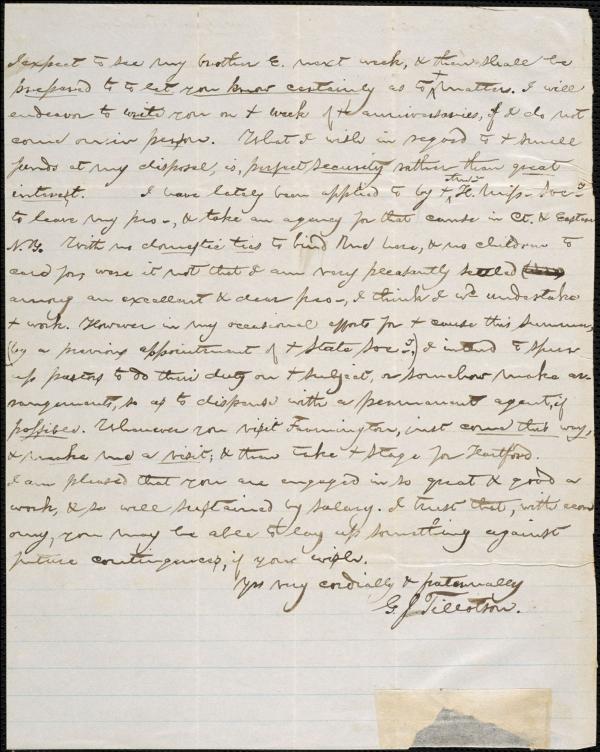 I expect to see my brother E. next week, & then shall be
prepared to to let you know certainly as to + matter. I will
endeavor to write you on + week of + anniversaries, if I do not
come on in person. What I wish in regard to + small
funds at my disposal, is, perfect security rather than great
interest. I have lately been applied to by + H. Miss. Soc.y
to leave my peo-, & take an agency for that cause in Ct. & Eastern
N.Y. With no domestic ties to bind me here, & no children to
care for, were it not that I am very pleasantly settled
among an excellent & dear peo-, I think I wd undertake
+ work. However in my occasional efforts for + cause this summer,
(by a previous appointment of + State Soc.y,) I intend to spur
up pastors to do their duty on + subject, or somehow make ar-
rangements, so as to dispense with a permanent agent, if
possible. Whenever you visit Farmington, just come this way,
& make me a visit; & then take + stage for Hartford.
I am pleased that you are engaged in so great & good a
work, & so well sustained by salary. I trust that, with econ
omy, you may be able to lay up something against
future contingences, if your wish.
Yrs very cordially & fraternally
G. J. Tillotson.